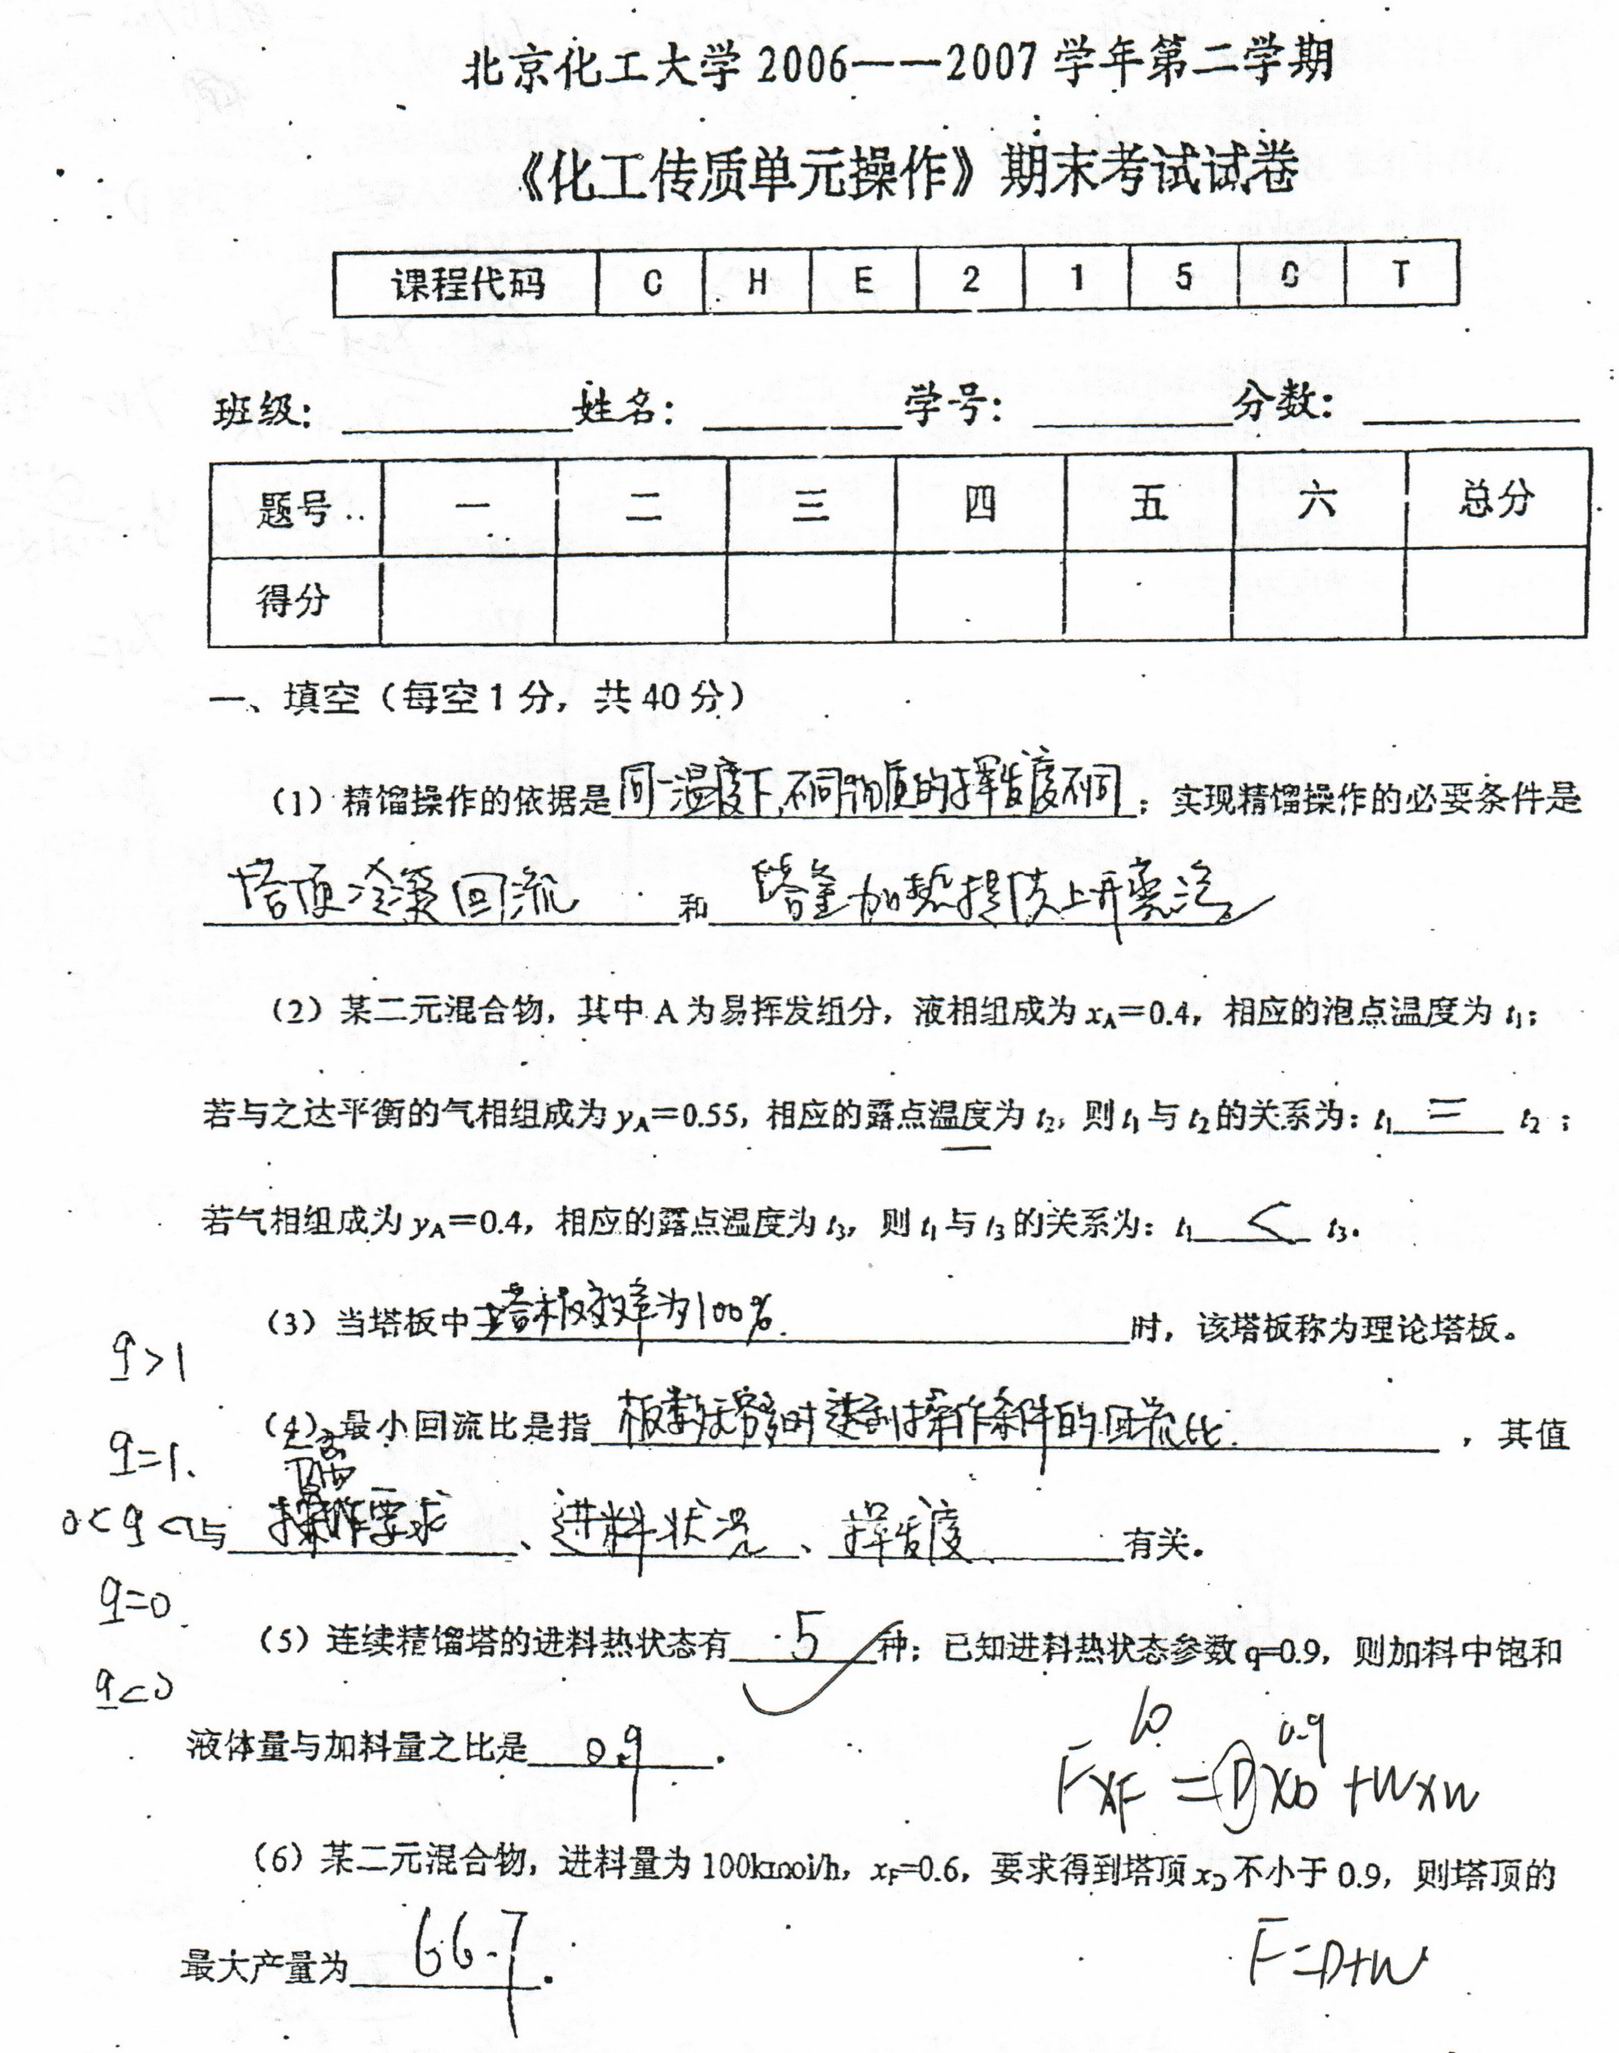 北京化工大学 2006——2007 学年第二学期
《化工传质单元操作》期末考试试卷
课程代码 C H E 2 1 5 0 T
班级: 姓名: 学号: 分数:
题号 一 二 三 四 五 六 总分
得分
一、填空（每空 1 分，共 40 分）
（1）精馏操作的依据是同一温度下,不同物质的挥发度不同；实现精馏操作的必要条件是
塔顶冷凝回流 和 塔釜加热提供上升蒸汽
（2）某二元混合物，其中 A 为易挥发组分，液相组成为 xA=0.4，相应的泡点温度为 t1；
若与之达平衡的气相组成为 yA=0.55，相应的露点温度为 t2，则 t1 与 t2 的关系为：t1 = t2；
若气相组成为 yA=0.4，相应的露点温度为 t3，则 t1 与 t3 的关系为：t1 < t3。
（3）当塔板中塔板效率为100%. 时，该塔板称为理论塔板。
q>1
（4）最小回流比是指板数无穷多时达到操作条件的回流比. ，其值
q=1.
0<q<1
与 操作要求、进料状况、挥发度 有关。
q=0
（5）连续精馏塔的进料热状态有 5 种；已知进料热状态参数 q=0.9，则加料中饱和
q<0
液体量与加料量之比是 0.9 。
0.9
FxF = DxD + WxW
（6）某二元混合物，进料量为 100kmol/h，xF=0.6，要求得到塔顶 xD 不小于 0.9，则塔顶的
最大产量为 66.7 。
F=D+W